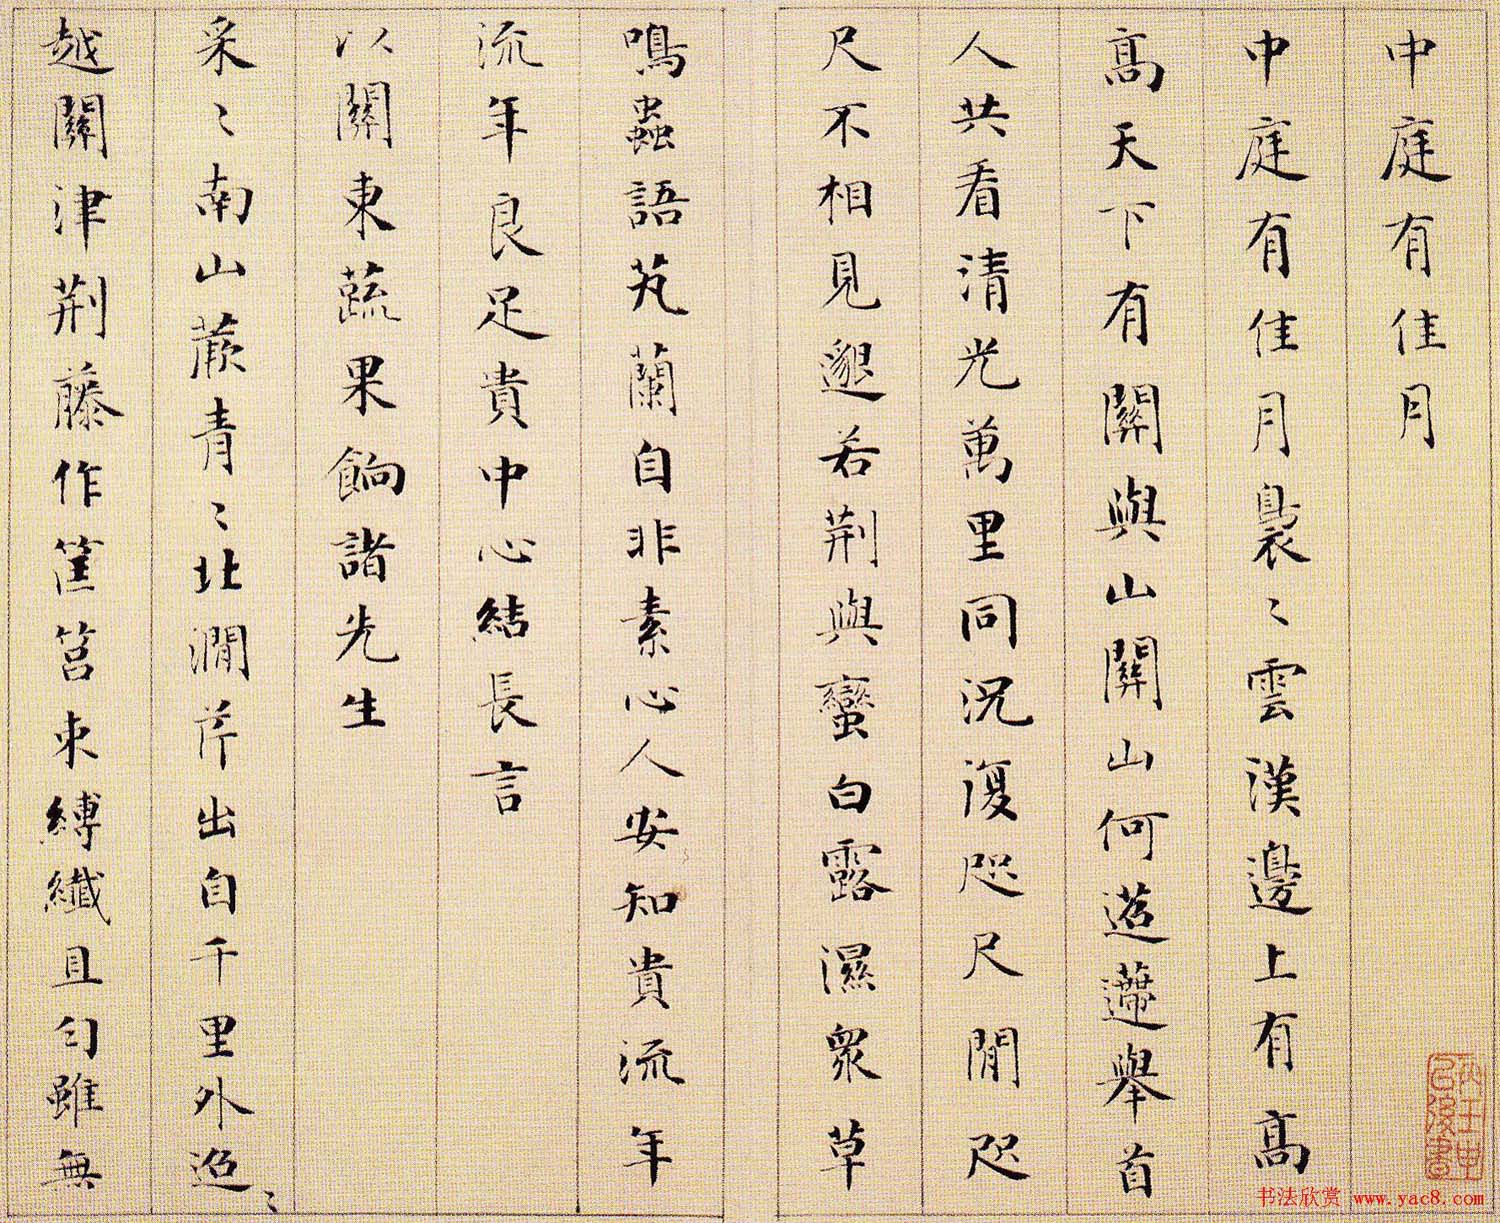 中庭有佳月
中庭有佳月裊〻雲漢邊上有高
高天下有關與山關山何迢遰舉首
人共看清光萬里同況復咫尺間咫
尺不相見邈若荆與蠻白露濕衆草
鳴蟲語芄蘭自非素心人安知貴流年
流年良足貴中心結長言
以關東蔬果餉諸先生
采〻南山蕨青〻北澗芹出自千里外迢〻
越關津荆藤作筐筥束縛纖且匀雖無
书法欣赏 www.yac8.com